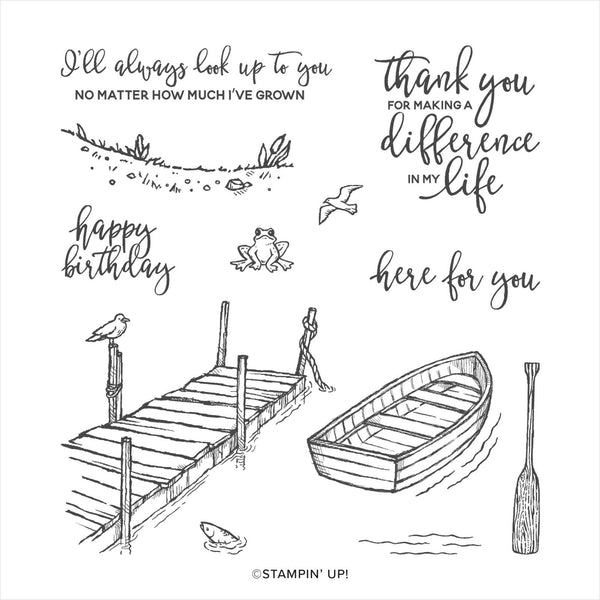 I'll always look up to you
NO MATTER HOW MUCH I'VE GROWN
thank you
FOR MAKING A
difference
IN MY life
happy
birthday
here for you
©STAMPIN' UP!